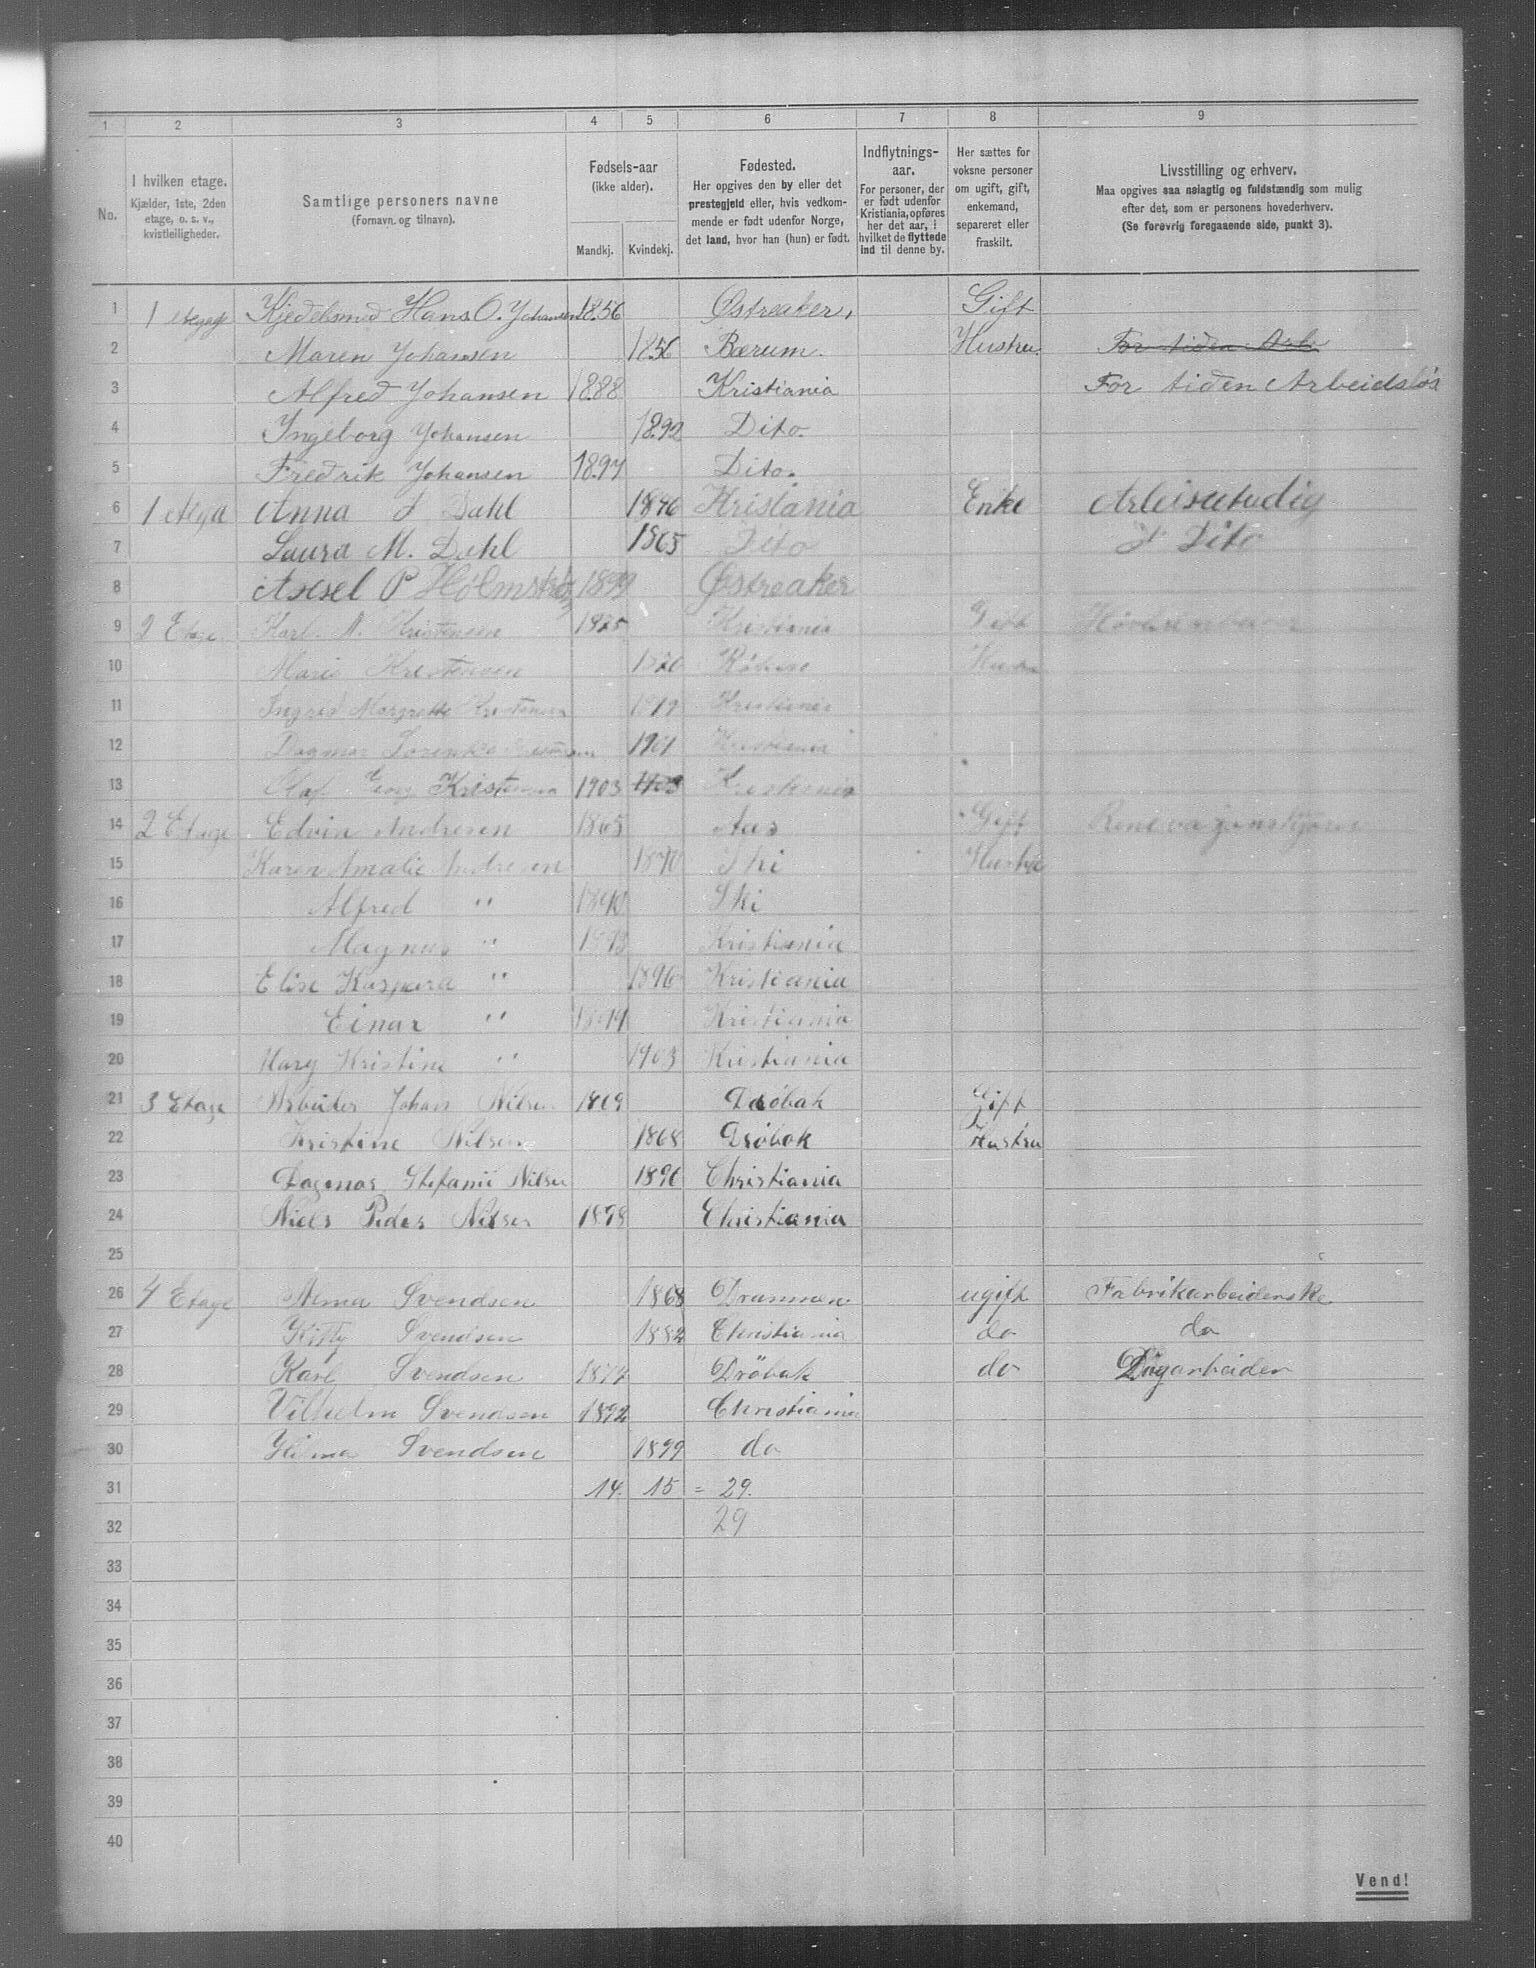 1 2 3 4 5 6 7 8 9
No.
I hvilken etage.
Kjælder, 1ste, 2den
etage, o. s. v.,
kvistleiligheder.
Samtlige personers navne
(Fornavn og tilnavn).
Fødsels-aar
(ikke alder).
Mandkj. Kvindekj.
Fødested.
Her opgives den by eller det
prestegjeld eller, hvis vedkom-
mende er født udenfor Norge,
det land, hvor han (hun) er født.
Indflytnings-
aar.
For personer, der
er født udenfor
Kristiania, opføres
her det aar, i
hvilket de flyttede
ind til denne by.
Her sættes for
voksne personer
om ugift, gift,
enkemand,
separeret eller
fraskilt.
Livsstilling og erhverv.
Maa opgives saa nøiagtig og fuldstændig som mulig
efter det, som er personens hovederhverv.
(Se forøvrig foregaaende side, punkt 3).
1 1 Kjedelsmed Hans O. Johansen 1856 Østreaker, Gift
2 Maren Johansen 1856 Bærum. Hustru For tiden Arb
3 Alfred Johansen 1888 Kristiania For tiden Arbeidsløs
4 Ingeborg Johansen 1892 Dito.
5 Fredrik Johansen 1897 Dito.
6 1 Anna J Dahl 1846 Kristania Enke
7 Laura M. Dahl 1865 Dito Dito
8 Aksel P 1899 Østreaker
9 2 Etage Karl A. Kristensen Kristiania Gift
10 Marie
11 Ingrid Margrethe Kristiania
12 Dagmar 1901 Kristiania
13 Olaf Georg Kristensen 1903 1903 Kristiania
14 2 Etage Edvin Andresen 1865 Aas Gift
15 Karen Amalie Andresen 1870 Ski Hustru
16 Alfred " 1890 Ski
17 Magnus " 1893 Kristiania
18 Elise Kaspara " 1896 Kristiania
19 Einar " 1899 Kristiania
20 Mary Kristine " 1903 Kristiania
21 3 Etage Arbeider Johan Nilsen 1869 Drøbak Gift
22 Kristine Nilsen 1868 Drøbak Hustru
23 Dagmar Stefanie Nilsen 1896 Christiania
24 Niels Peder Nilsen 1898 Christiania
25
26 4 Etage Svendsen 1868 Drammen ugift Fabrikarbeiderske
27 Kitty Svendsen 1882 Christiania do do
28 Karl Svendsen 1877 Drøbak do
29 Vilhelm Svendsen 1892 Christiania
30 Svendsen 1899 do
31 14. 15 = 29.
32 29
33
34
35
36
37
38
39
40
Vend!